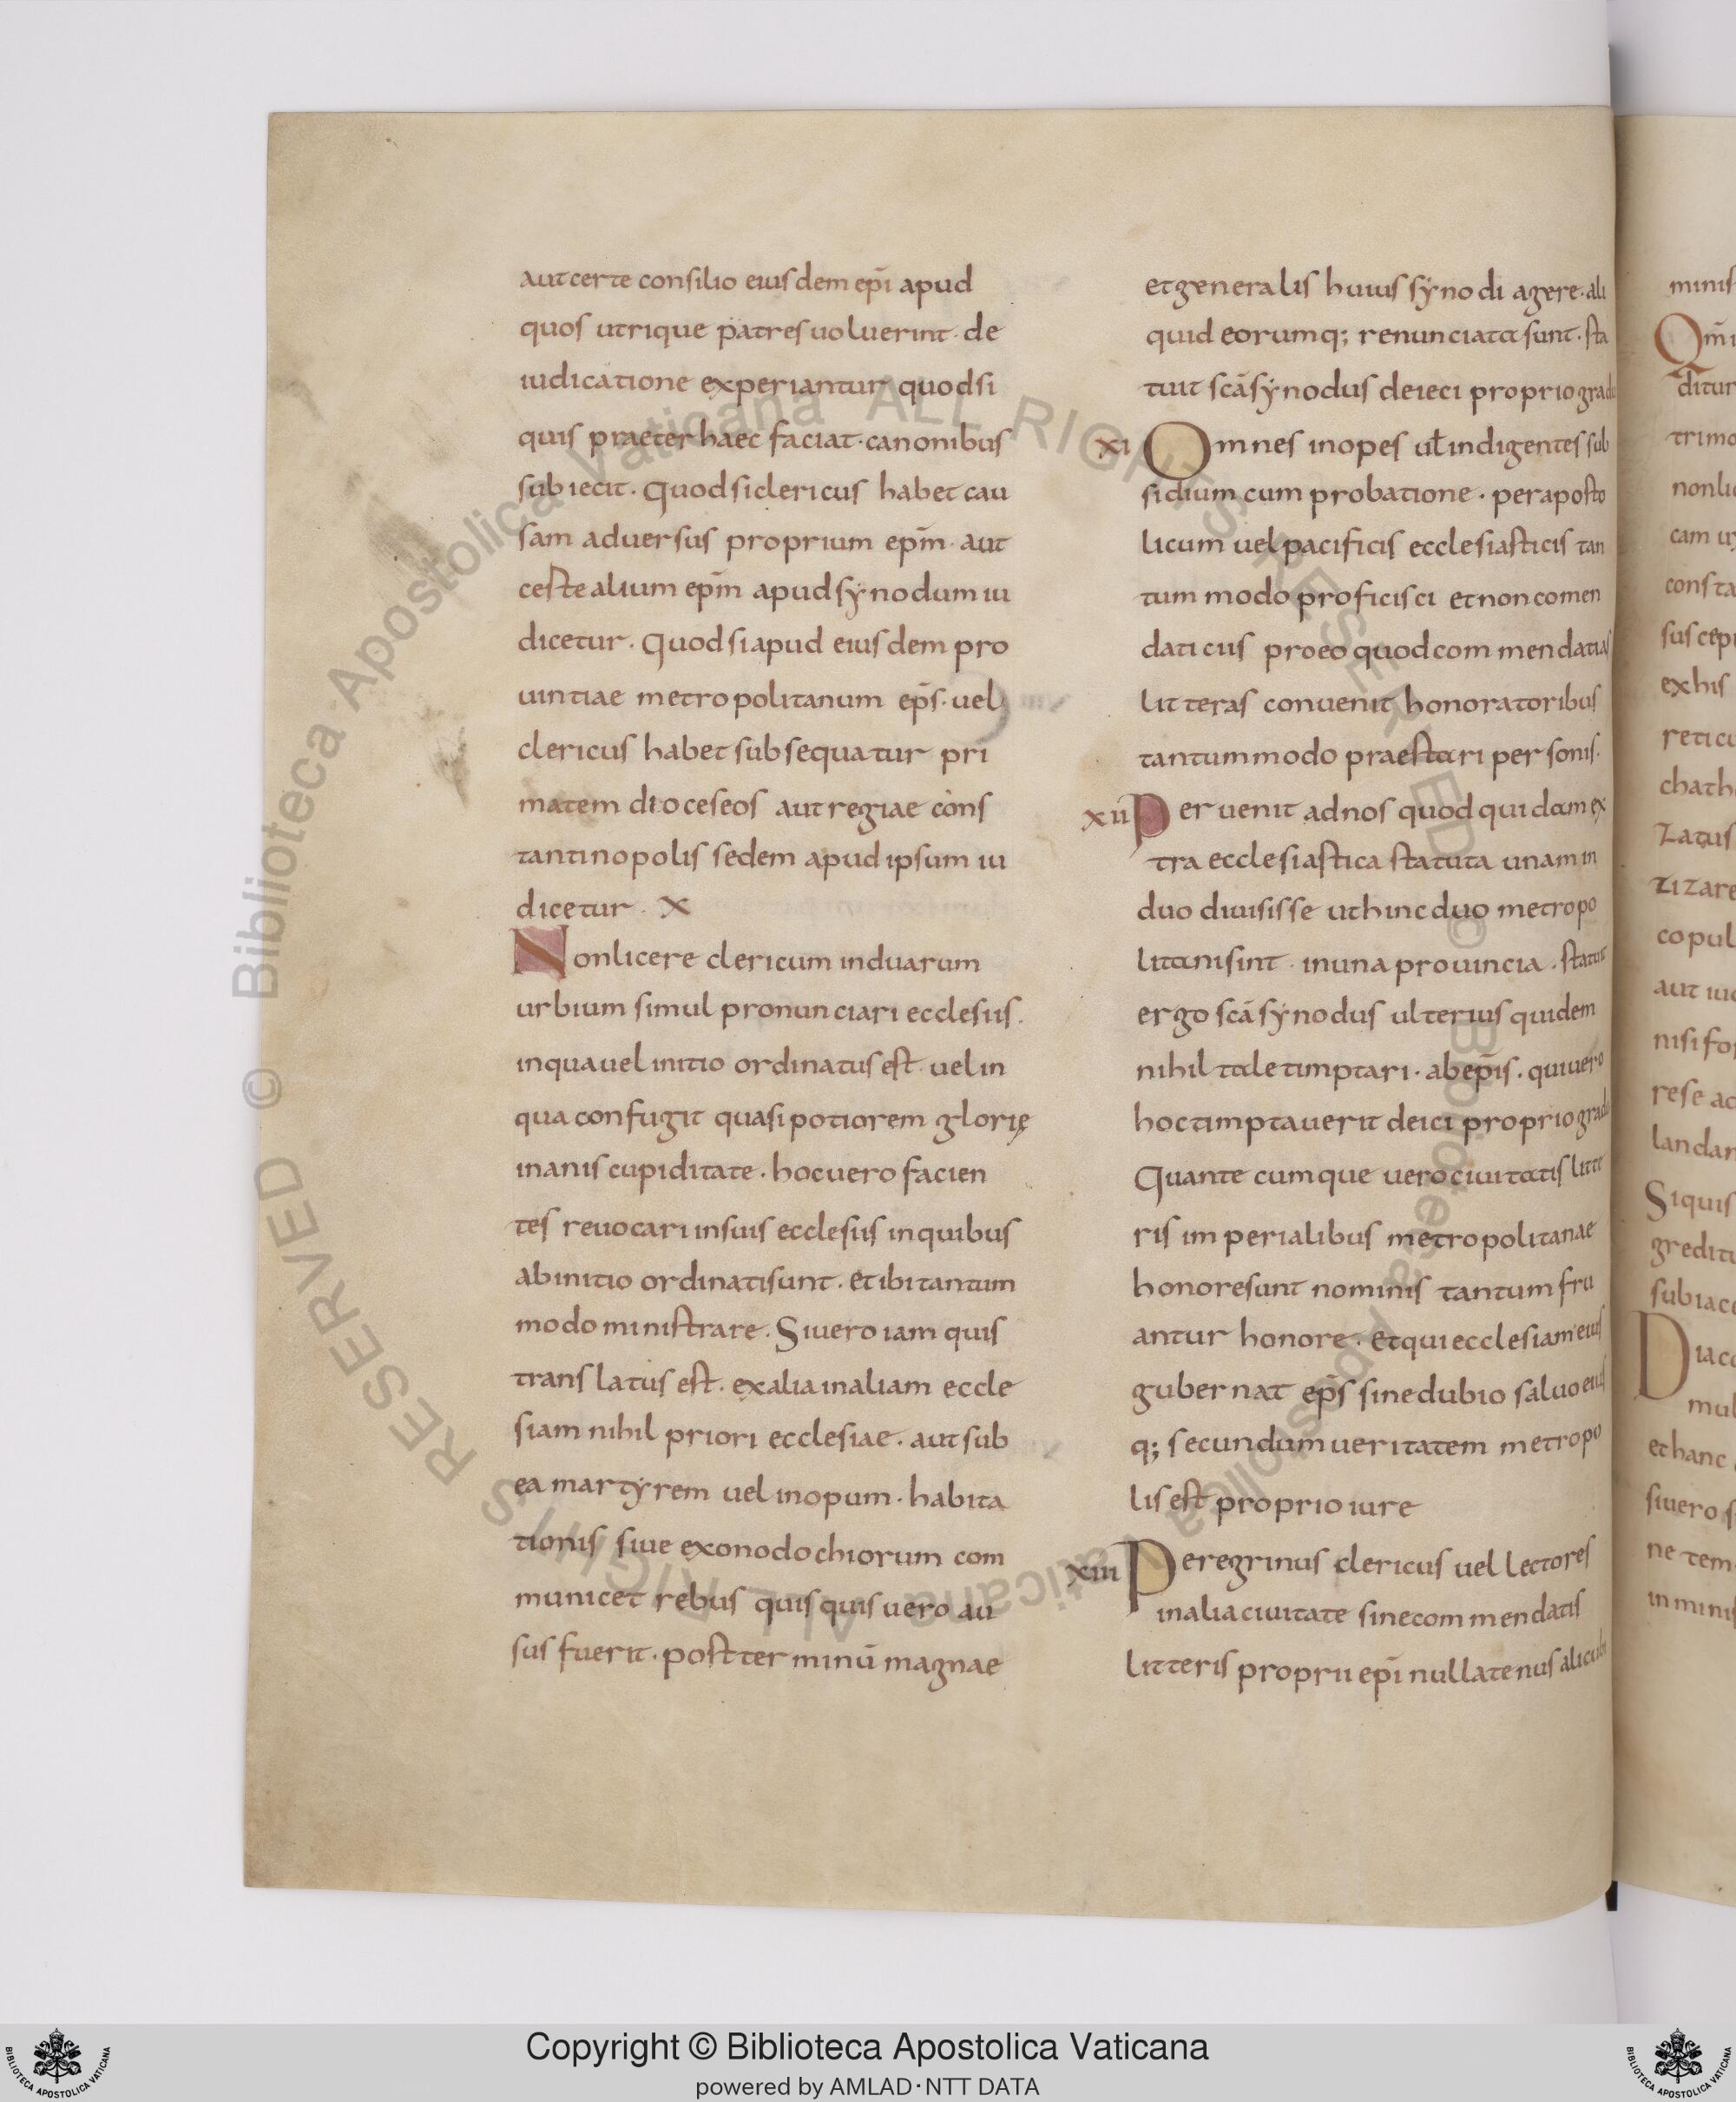 aut certe consilio eiusdem ep̄i apud
quos utrique patres uoluerint· de
iudicatione experiantur quod si
quis praeter haec faciat· canonibus
subiecit· Quod si clericus habet cau
sam aduersus proprium ep̄m· aut
ceste alium ep̄m apud synodum iu
dicetur· Quod si apud eiusdem pro
uintiae metropolitanum ep̄s· uel
clericus habet subsequatur pri
matem dioceseos aut regiae cons
tantinopolis sedem apud ipsum iu
dicetur· X
Non licere clericum in duarum
urbium simul pronunciari ecclesiis·
in qua uel initio ordinatus est· uel in
qua confugit quasi potiorem glorię
inanis cupiditate· hoc uero facien
tes reuocari in suis ecclesiis in quibus
ab initio ordinati sunt· et ibi tantum
modo ministrare· Si uero iam quis
translatus est· ex alia in aliam eccle
siam nihil priori ecclesiae· aut sub
ea martyrem uel inopum· habita
tionis siue exonodochiorum com
municet rebus quisquis uero au
sus fuerit· post terminū magnae
et generalis huius synodi agere· ali
quid eorumq; renunciata sunt· sta
tuit scā synodus deieci proprio gradu
XI Omnes inopes uƚ indigentes sub
sidium cum probatione· per aposto
licum uel pacificis ecclesiasticis tan
tum modo proficisci et non comen
daticiis pro eo quod commendatias
litteras conuenit honoratoribus
tantummodo praestari personis·
XII Peruenit ad nos quod quidam ex
tra ecclesiastica statuta unam in
duo diuisisse ut hinc duo metropo
litani sint· in una prouincia· statuit
ergo scā synodus ulterius quidem
nihil tale timptari· ab ep̄is· qui uero
hoc timptauerit deici proprio gradu
Quantecumque uero ciuitatis litte
ris imperialibus metropolitanae
honore sunt nominis tantum fru
antur honore· et qui ecclesiam eius
gubernat ep̄s sine dubio saluo eius
q; secundum ueritatem metropo
lis est proprio iure
XIII Peregrinus clericus uel lectores
in alia ciuitate sine commendatis
litteris proprii ep̄i nullatenus alicubi
minis
Qm̄
ditur
trimo
non lic
cam
consta
suscep
ex his
retico
chath
zatus
tizare
copul
aut iud
nisi for
rese ad
landan
Siquis
greditu
subiace
Diaco
mul
et hanc
siuero s
ne tem
in minis
© Biblioteca Apostolica Vaticana ALL RIGHTS RESERVED © Biblioteca Apostolica Vaticana ALL RIGHTS RESERVED
Copyright © Biblioteca Apostolica Vaticana
powered by AMLAD·NTT DATA
BIBLIOTECA APOSTOLICA VATICANA
BIBLIOTECA APOSTOLICA VATICANA